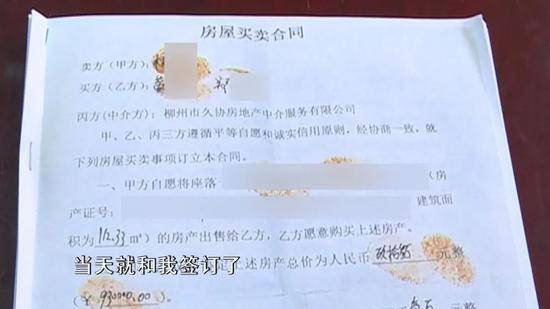 房屋买卖合同
卖方(甲方):
买方(乙方):
丙方(中介方):柳州市久协房地产中介服务有限公司
甲、乙、丙三方遵循平等自愿和诚实信用原则,经协商一致,就
下列房屋买卖事项订立本合同。
一、甲方自愿将座落(房
产证号: 建筑面
积为112.33m²)的房产出售给乙方,乙方愿意购买上述房产。
当天就和我签订了
上述房产总价为人民币 元整
(¥930000.00)。
元整